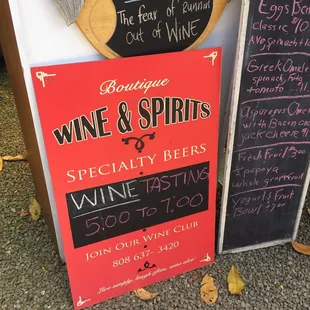 The fear of Runnin
out of WINE
Boutique
WINE & SPIRITS
SPECIALTY BEERS
WINE TASTING
5:00 TO 7:00
JOIN OUR WINE CLUB
808 637- 3420
Live simply, laugh often, wine lots!
Eggs Ben
classic $10
Avo spinach
Greek Omele
spinach, Feta
tomato
Asparagus Ome
with Bacon and
jack cheese
Fresh Fruit
½ papaya
whole grapefruit
Yogurt & Fruit
Bowl